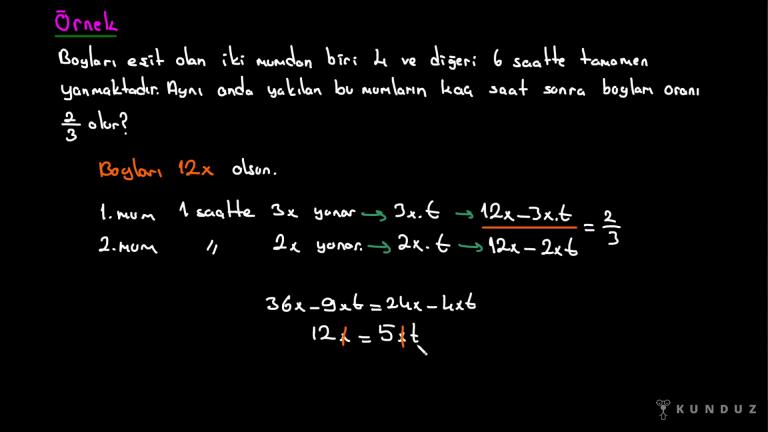 Örnek
Boyları eşit olan iki mumdan biri 4 ve diğeri 6 saatte tamamen
yanmaktadır. Aynı anda yakılan bu mumların kaç saat sonra boyları oranı
2/3 olur?
Boyları 12x olsun.
1. mum 1 saatte 3x yanar → 3x.t → 12x-3x.t / 12x-2xt = 2/3
2. mum " 2x yanar. → 2x.t →
36x-9xt = 24x-4xt
12x = 5xt
KUNDUZ